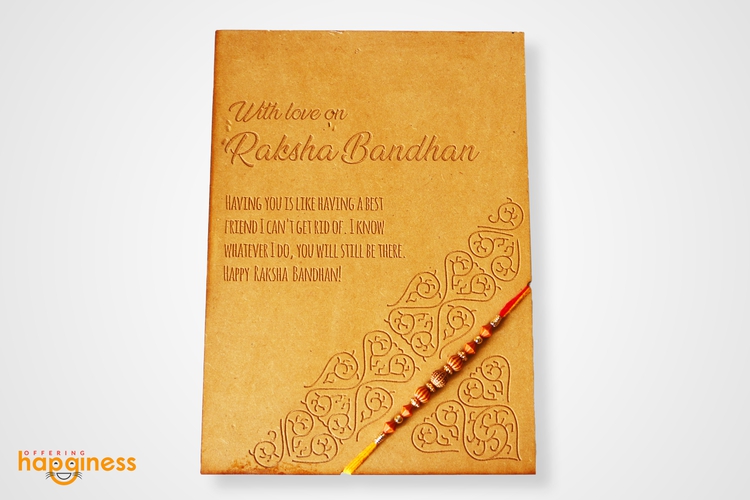 With love on
Raksha Bandhan
HAVING YOU IS LIKE HAVING A BEST
FRIEND I CAN'T GET RID OF. I KNOW
WHATEVER I DO, YOU WILL STILL BE THERE.
HAPPY RAKSHA BANDHAN!
OFFERING
happiness